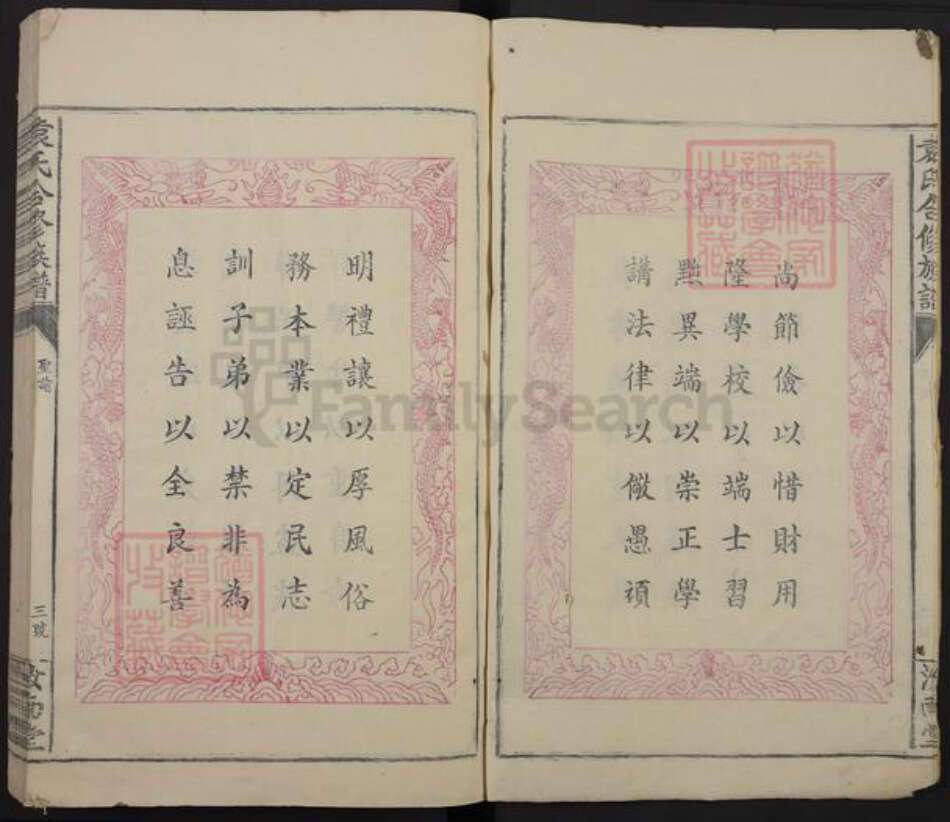 袁氏合修族譜
尚節儉以惜財用
隆學校以端士習
黜異端以崇正學
講法律以儆愚頑
明禮讓以厚風俗
務本業以定民志
訓子弟以禁非為
息誣告以全良善
袁氏合修族譜
聖諭
三號
汝南堂
FamilySearch